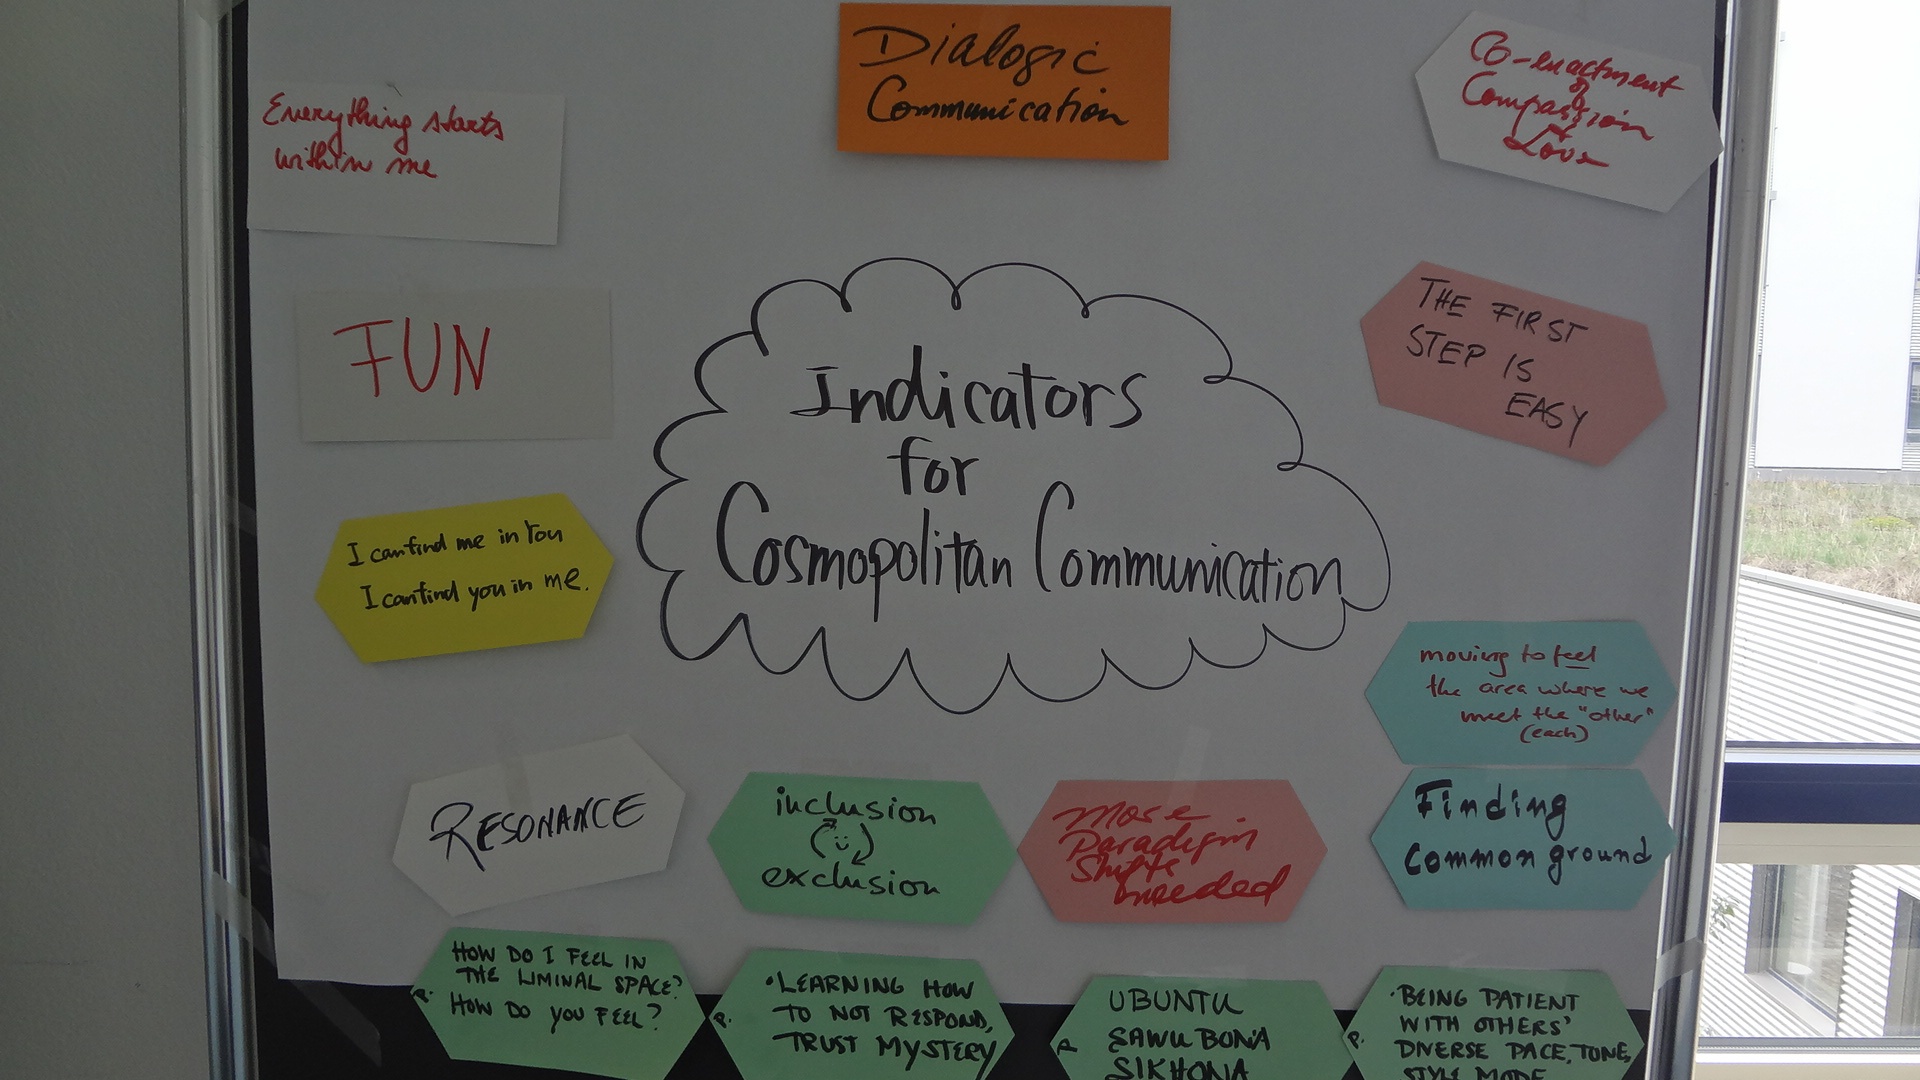 Dialogic
Communication
Everything starts
within me
Co-enactment
of
Compassion
+
Love
FUN
THE FIRST
STEP IS
EASY
Indicators
for
Cosmopolitan Communication
I can find me in You
I can find you in me.
moving to feel
the area where we
meet the "other"
(each)
RESONANCE
inclusion
exclusion
More
Paradigm
Shifts
needed
Finding
Common ground
HOW DO I FEEL IN
THE LIMINAL SPACE?
HOW DO YOU FEEL?
R.
•LEARNING HOW
TO NOT RESPOND,
TRUST MYSTERY
R.
UBUNTU
SAWUBONA
SIKHONA
R
•BEING PATIENT
WITH OTHERS'
DIVERSE PACE, TONE,
STYLE, MODE
R.